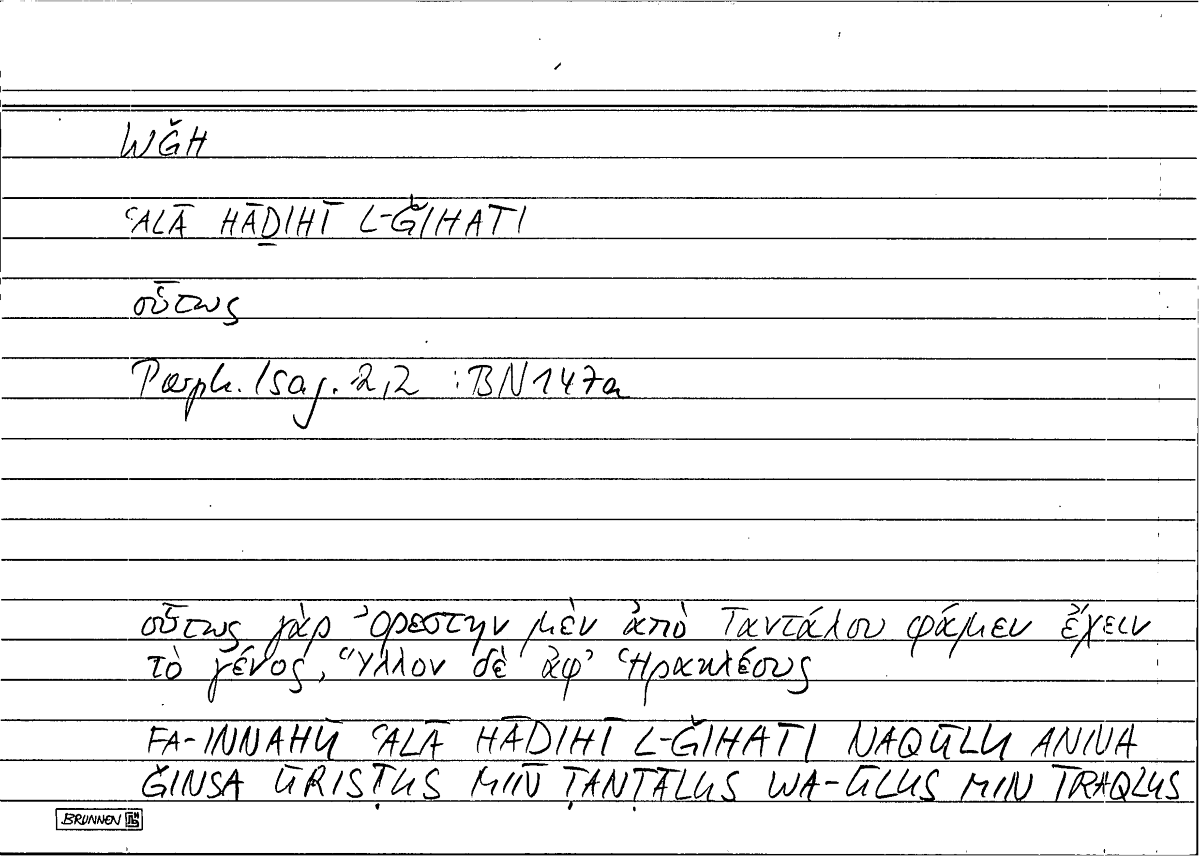 WǦH
ʿALĀ HĀḎIHĪ L-ǦIHATI
οὕτως
Porph. Isag. 2,2 : BN 147a
οὕτως γὰρ Ὀρέστην μὲν ἀπὸ Ταντάλου φάμεν ἔχειν
τὸ γένος, Ὕλλον δὲ ἀφ' Ἡρακλέους
FA-INNAHŪ ʿALĀ HĀḎIHĪ L-ǦIHATI NAQŪLU ANNA
ǦINSA ŪRISṬUS MIN ṬANṬĀLUS WA-ŪLUS MIN ĪRAQLUS
BRUNNEN